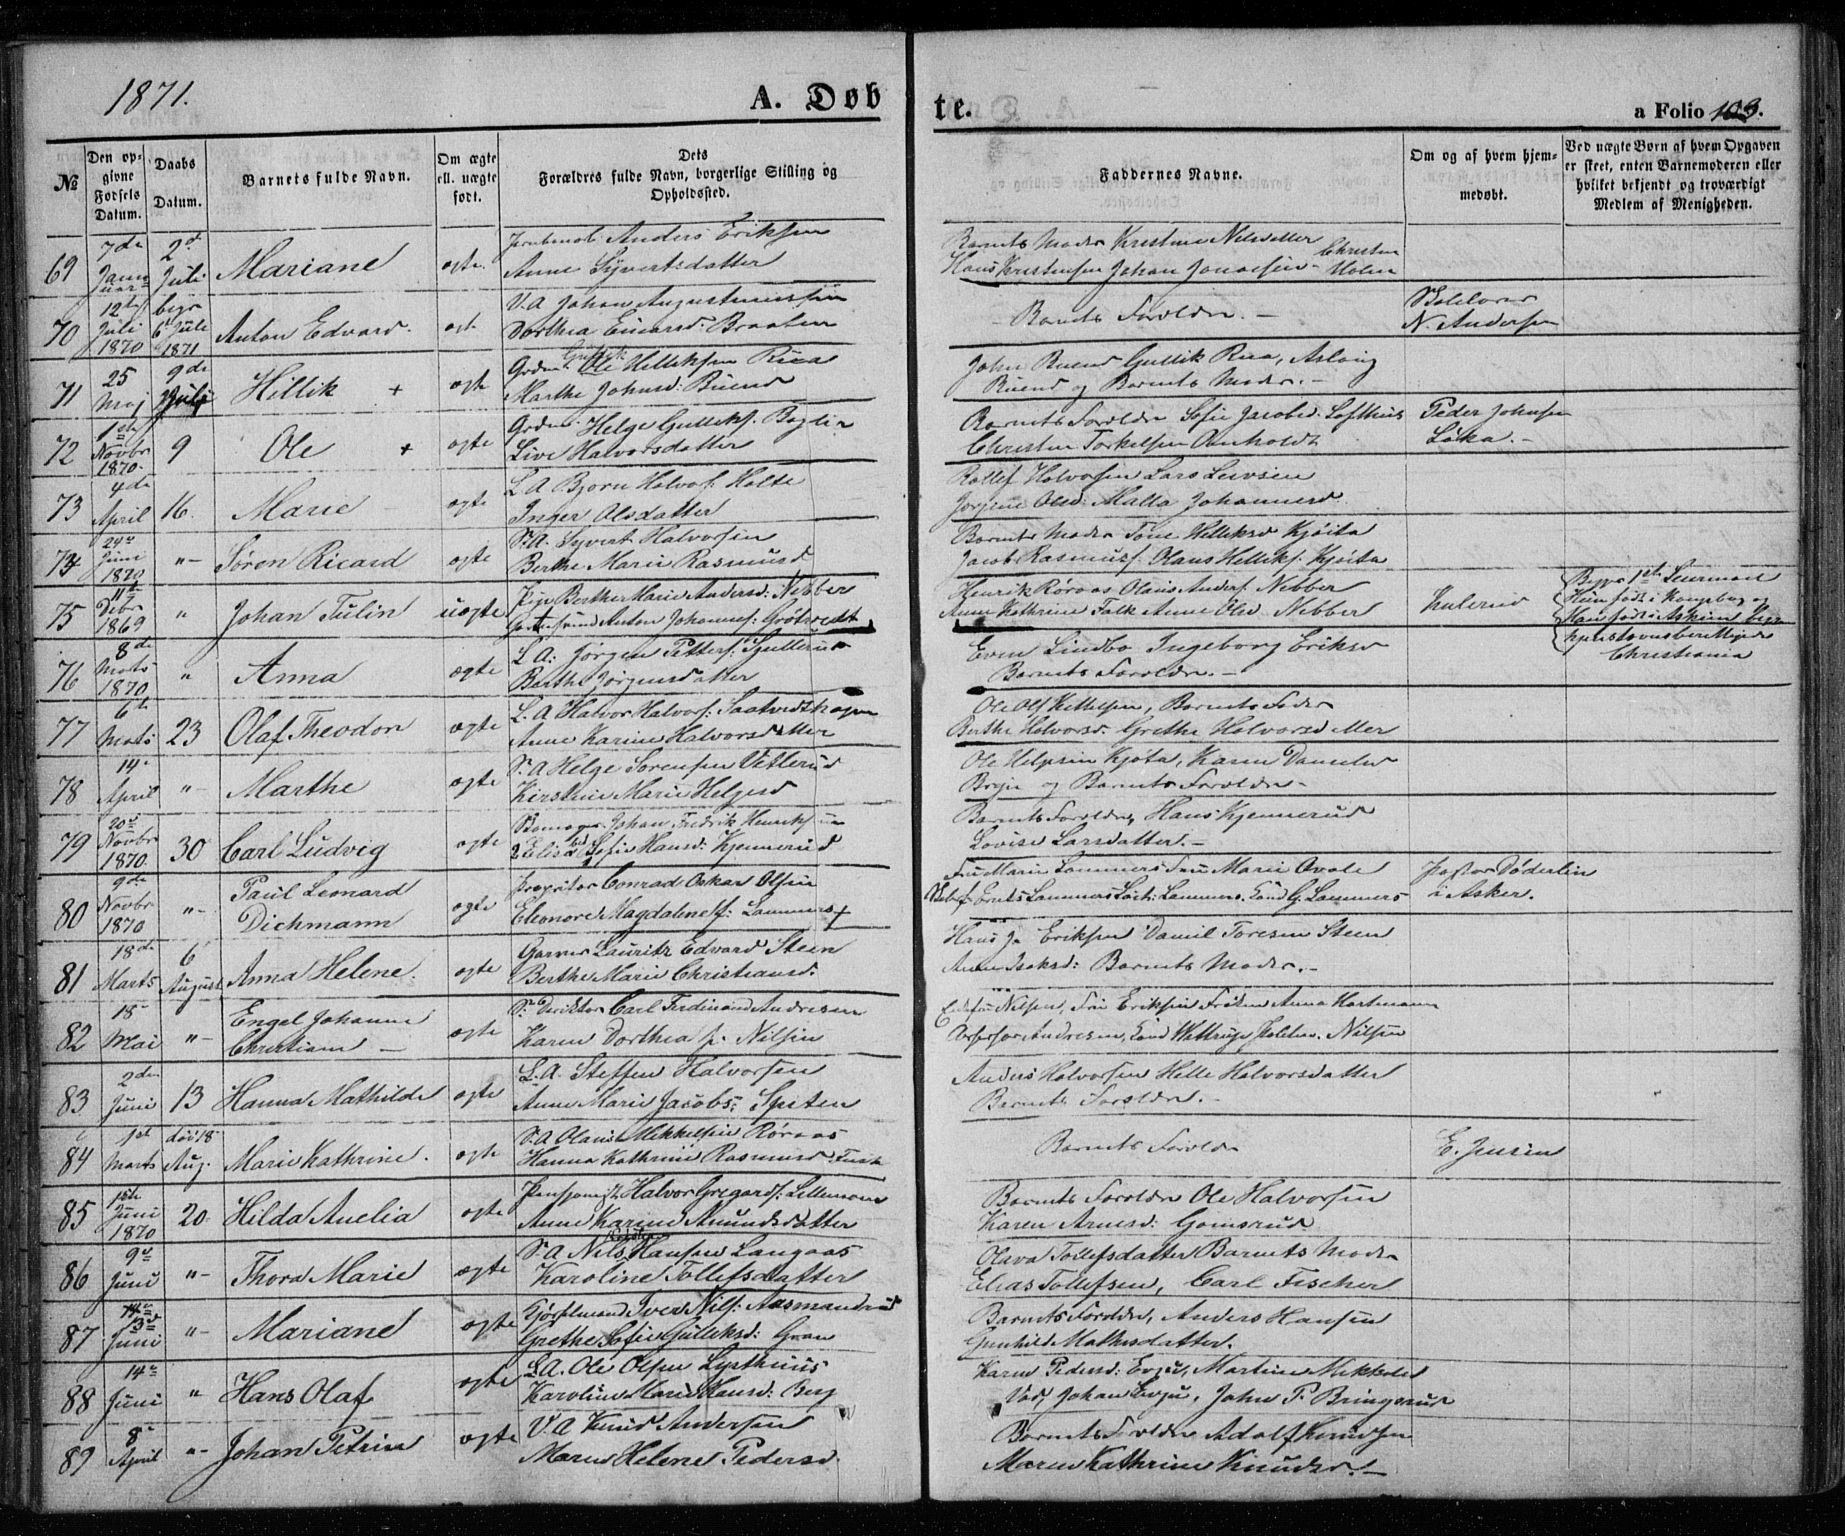 1871.
A. Døb
te.
a Folio 103.
No
Den opgivne Fødsels Datum.
Daabs Datum.
Barnets fulde Navn.
Om ægte ell. uægte født.
Dets Forældres fulde Navn, borgerlige Stilling og Opholdssted.
Faddernes Navne.
Om og af hvem hjemmedøbt.
Ved uægte Børn af hvem Opgaven er skeet, enten Barnemoderen eller hvilket bekjendt og troværdigt Medlem af Menigheden.
69 7de Januar 2d Juli Mariane ægte. Anders Eriksen
Anne Syvertsdatter
Barnets Moder Kristine Nilsdatter Christen
Hans Kristensen Johan Holm
70 12te Juli 1870 6 Juli 1871 Anton Edvard. ægt. V.A Johan Augustinussen
Dorthea Braaten
Barnets Foreldre. -
N. Andersen
71 25 Maj 9de Juli Hillik + ægte Gullik Ole Helliksen Riea
Marthe Johnsd: Buend
John Buend Gullik Riea, Aslaug
Buend og Barnets Moder. -
72 1ste Novbr 1870. 9 Ole + ægte Helge Gulliks. Bøglie
Live Halvorsdatter
Barnets Foreldre Sofie Jacobsd. Lofthus Peder Johnsen
Christen Torkelsen
73 4de April 16. Marie ægte L A Bjørn Halvors. Holte
Inger Olsdatter
Rollef Halvorsen Lars
Jørgine Olsd: Malla Johannesd
74 24de Juni 1870 "- Søren Ricard ægte S.A. Syvert Halvorsen
Berthe Marie Rasmusd
Barnets Moder Tone Helliksd Kjøita
Jacob Rasmuss. Olaus Helliks. Kjøita
75 11te Debr 1869 " Johan Tulin uægte Pige Berthe Marie Andersd: Nebber
Anton Johannes: Grøtvedt
Henrik Røraas Olaus Anders. Nebber
Anne Kathrine Falk Anne Olsd Nebber
1ste Leiermaal
Hun født i Kongsberg og
Han født i Askim
Christiania
76 8de Marts 1870 " Anna ægte L A: Jørgen Petters:
Berthe Jørgensdatter
Even Lindbo Ingeborg Eriksd
Barnets Foreldre. -
77 6te Marts 23 Olaf Theodor ægte L. A Halvor Halvors:
Anne Karine Halvorsdatter
Ole Olf Kittelsen, Barnets Fader
Berthe Halvorsd. Grethe Halvorsdatter
78 14de April "- Marthe ægte S. A Helge Sørensen Vetterud
Kirstine Marie Helgesd
Ole Helgesen Kjøta, Karen Danielsd
og Barnets Foreldre -
79 20de Novbr 1870. 30 Carl Ludvig ægte Johan Fredrik Henriks
Sofie Hansd: Kjennerud
Barnets Foreldre, Hans Kjennerud
Lovise Larsdatter. -
80 9de Novbr 1870 "- Paul Leonard
Dichmann ægte Proprietær Conrad Oskar Olsen
Eleonore Magdalene f: Lammers +
Fru Marie Lammers Fru Marie Pastor Døderlein
Lammers Lammers. G. Lammers i Asker.
81 18de Marts 6 August Anna Helene. ægte Garver Lauritz Edvard Steen
Berthe Marie Christiansd.
Hans Eriksen Daniel Toresen Steen
Anne Isaksd: Barnets Moder. -
82 18 Mai "- Engel Johanne
Christiane - ægte Carl Ferdinand Andresen
Karen Dorthea f. Nilsen
Nilsen, Fru Eriksen Frøken Anna Hartmann
Andresen, Nilsen
83 2den Juni 13 Hanna Mathilde ægte L. A. Steffen Halvorsen
Anne Marie Jacobs: Spiten
Anders Halvorsen Helle Halvorsdatter
Barnets Foreldre. -
84 1ste Marts 18 Aug. Marie Kathrine. ægte S. A Olaus Mikkelsen Røraas
Hanna Kathrine Rasmusd:
Barnets Foreldre E. Jensen
85 1ste Juni 1870 20 Hilda Amelia ægte Halvor Gregards: Lillemoen
Anne Karine Amundsdatter
Barnets Foreldre Ole Halvorsen
Karen Arnesd: Gomsrud
86 9de Juni "- Thora Marie ægte S. A Nils Hansen Langaas
Karoline Tollefsdatter
Olava Tollefsdatter Barnets Moder
Elias Tollefsen, Carl Fischer
87 13de Juni "- Mariane ægte Iver Nils: Aasmandrud
Grethe Sofie Gulliksd: Gran
Barnets Foreldre, Anders Hansen
Gunhild Mathisdatter.
88 14de Juni " Hans Olaf ægte L. A. Ole Olsen Lysthuus
Karoline Marie Hansd: Berg
Karen Pedersd: Evju, Martine Mikkelsd
Johan Evju, John P. Bringsrud
89 8de April "- Johan Petrin ægte V. A Knud Andersen
Maren Helene Pedersd.
Barnets Foreldre Adolf Knudsen
Maren Kathrine Knudsd. -